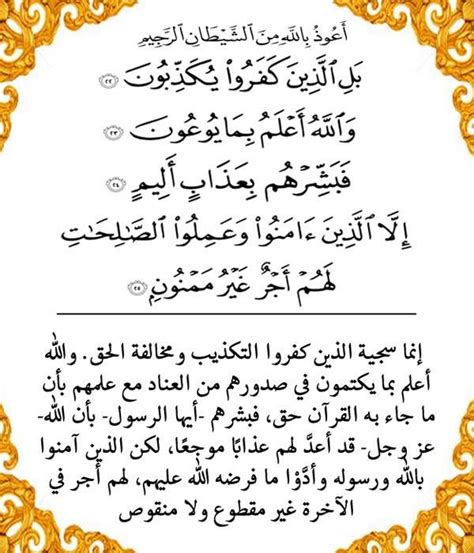 أَعُوذُ بِاللَّهِ مِنَ الشَّيْطَانِ الرَّجِيمِ
بَلِ ٱلَّذِينَ كَفَرُوا۟ يُكَذِّبُونَ ٢٢
وَٱللَّهُ أَعْلَمُ بِمَا يُوعُونَ ٢٣
فَبَشِّرْهُم بِعَذَابٍ أَلِيمٍ ٢٤
إِلَّا ٱلَّذِينَ ءَامَنُوا۟ وَعَمِلُوا۟ ٱلصَّٰلِحَٰتِ
لَهُمْ أَجْرٌ غَيْرُ مَمْنُونٍ ٢٥
إنما سجية الذين كفروا التكذيب ومخالفة الحق. والله
أعلم بما يكتمون في صدورهم من العناد مع علمهم بأن
ما جاء به القرآن حق، فبشرهم -أيها الرسول- بأن الله-
عز وجل- قد أعدَّ لهم عذابًا موجعًا، لكن الذين آمنوا
بالله ورسوله وأدَّوْا ما فرضه الله عليهم، لهم أجر في
الآخرة غير مقطوع ولا منقوص